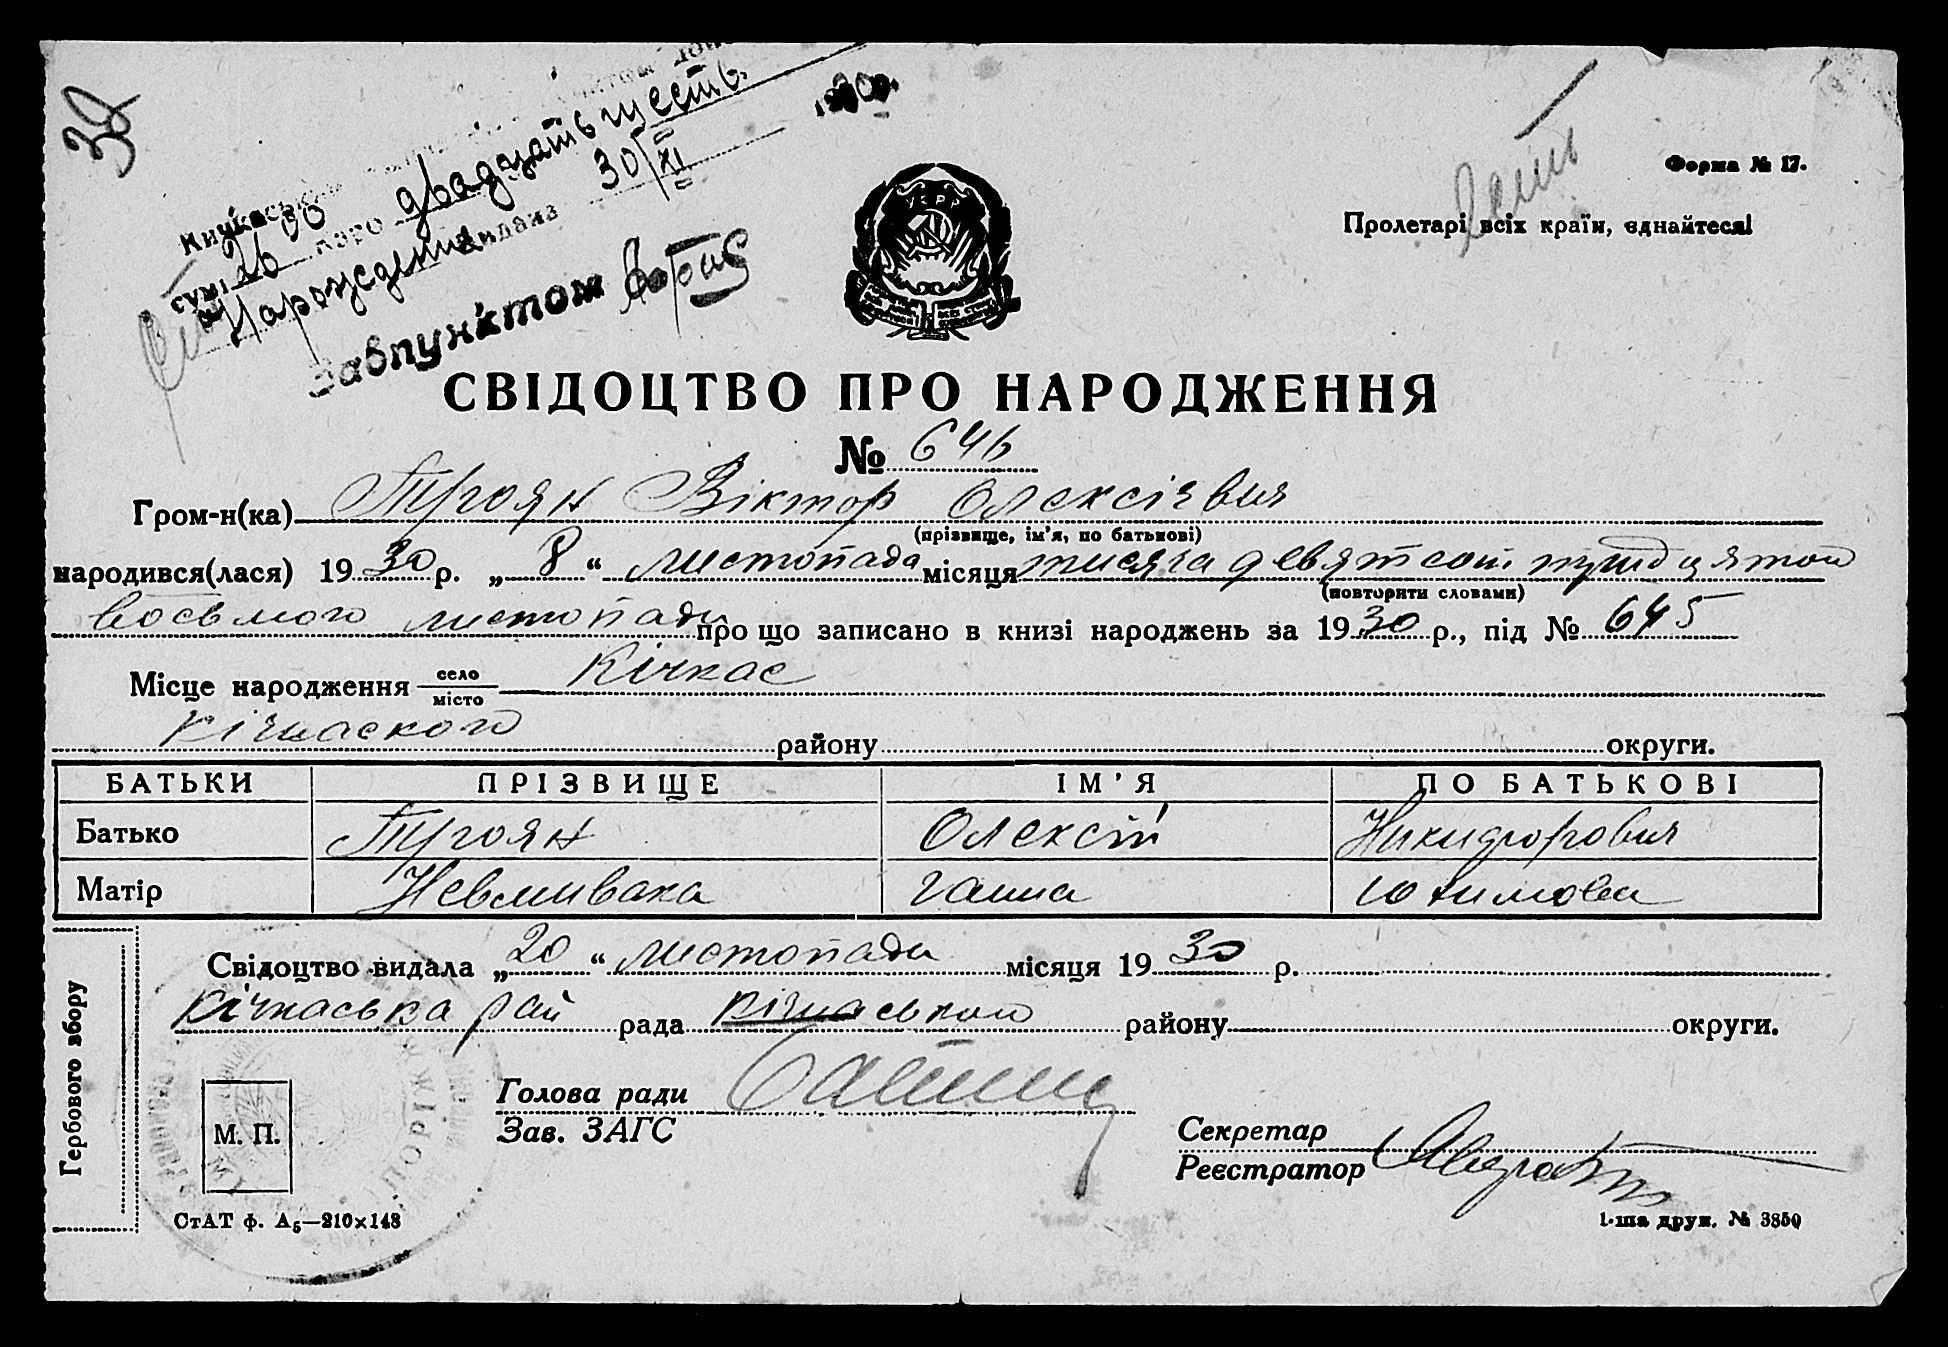 38
двадцать шесть
30/XI
Нарождения
Завпунктом
Форма № 17.
Пролетарі всіх країн, єднайтеся!
УСРР
СВІДОЦТВО ПРО НАРОДЖЕННЯ
№ 646
Гром-н(ка) Троян Віктор Олексієвич
(прізвище, ім'я, по батькові)
народився(лася) 1930 р. „8“ листопада місяця тисяча девятсот тридцятого
(повторити словами)
восьмого листопада про що записано в книзі народжень за 1930 р., під № 645
Місце народження село місто Кічкас
Кічкаского району округи.
БАТЬКИ ПРІЗВИЩЕ ІМ'Я ПО БАТЬКОВІ
Батько Троян Олексій Никифорович
Матір Невмивака Ганна Юхимовна
Свідоцтво видала „20“ листопада місяця 1930 р.
Кічкаська рай рада Кічкаського району округи.
Гербового збору
М. П.
Голова ради
Зав. ЗАГС
Секретар
Реєстратор
СтАТ ф. А5—210×148
1-ша друк. № 3850